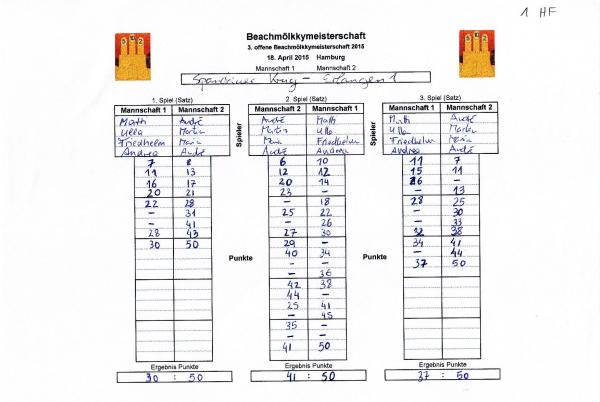 1 HF
Beachmölkkymeisterschaft
3. offene Beachmölkkymeisterschaft 2015
18. April 2015 Hamburg
Mannschaft 1 Mannschaft 2
Krug – Erlangen 1
1. Spiel (Satz) 2. Spiel (Satz) 3. Spiel (Satz)
Mannschaft 1 Mannschaft 2 Mannschaft 2 Mannschaft 1 Mannschaft 1 Mannschaft 2
Spieler Spieler
Matti André André Matti Matti André
Ulla Martin Martin Ulla Ulla Martin
Friedhelm Maria Maria Friedhelm Friedhelm Maria
Andrea André André Andrea Andrea André
7 8 6 10 11 7
11 13 12 12 15 11
16 17 20 14 26 –
20 21 23 – – 13
22 28 – 18 28 25
– 31 25 22 – 30
– 41 – 26 – 33
28 43 27 30 32 38
30 50 29 – 34 41
40 34 – 44
Punkte Punkte
– – 37 50
– 36
42 38
44 –
25 41
– 45
35 –
– –
41 50
Ergebnis Punkte Ergebnis Punkte Ergebnis Punkte
30 : 50 41 : 50 37 : 50